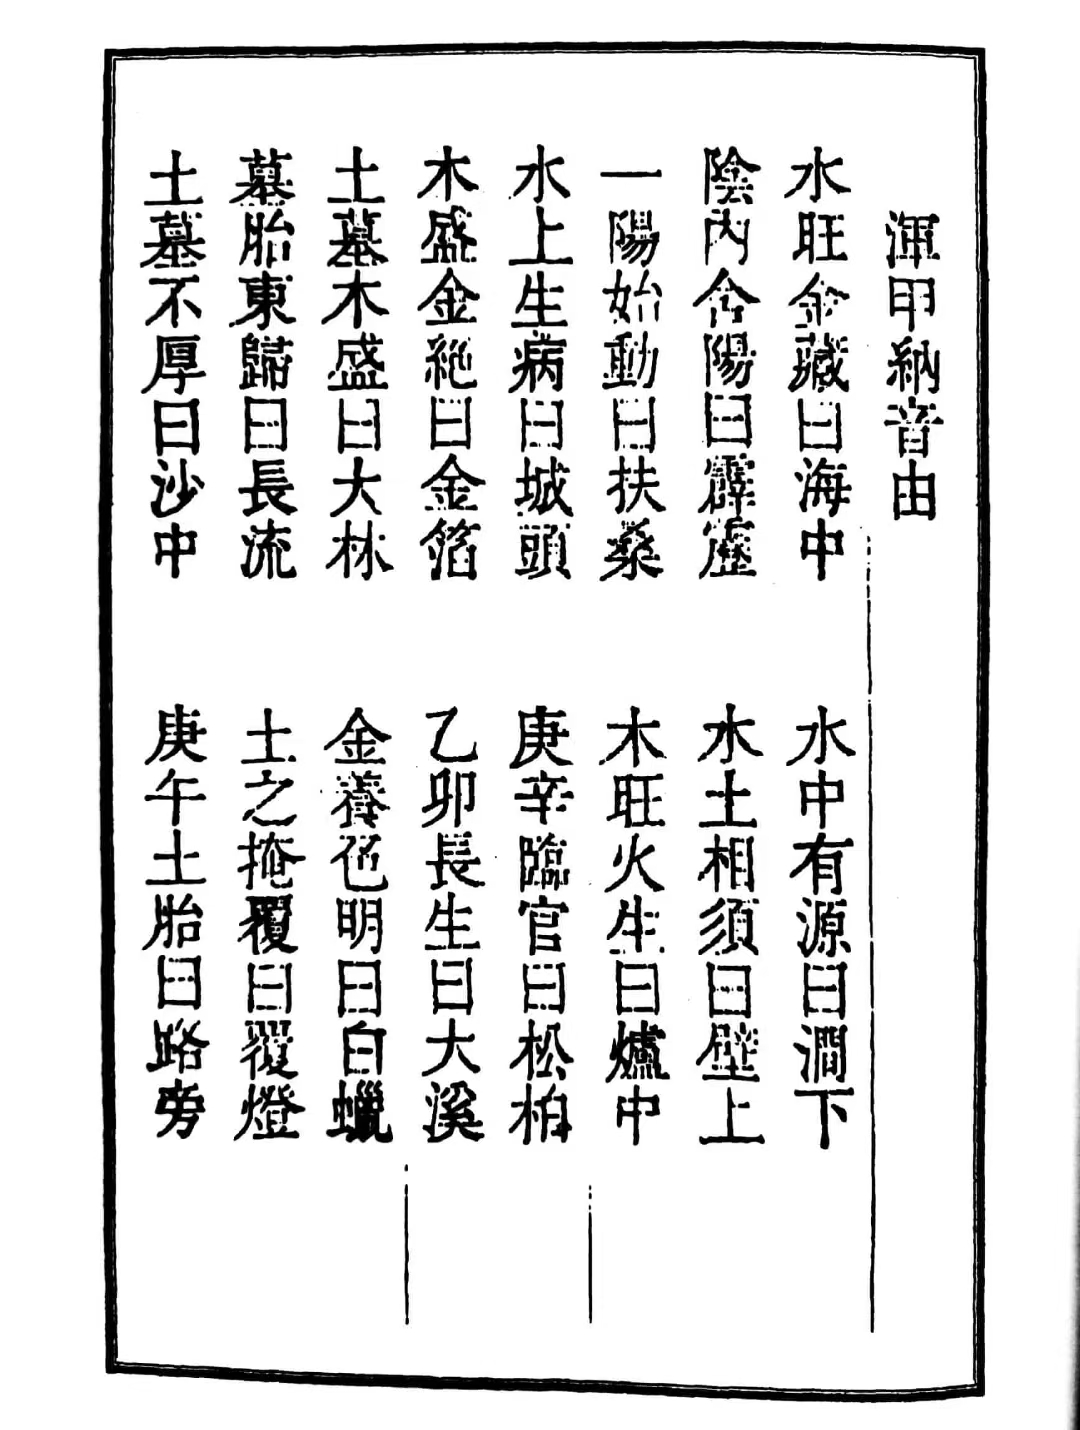 渾甲納音由
水旺金藏曰海中
水中有源曰澗下
陰內含陽曰霹靂
水土相須曰壁上
一陽始動曰扶桑
木旺火生曰爐中
水上生病曰城頭
庚辛臨官曰松柏
木盛金絕曰金箔
乙卯長生曰大溪
土墓木盛曰大林
金養色明曰白蠟
墓胎東歸曰長流
土之掩覆曰覆燈
土墓不厚曰沙中
庚午土胎曰路旁